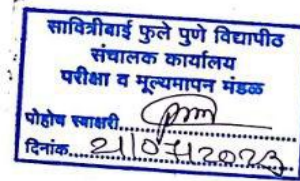 सावित्रीबाई फुले पुणे विद्यापीठ
संचालक कार्यालय
परीक्षा व मूल्यमापन मंडळ
पोहोच स्वाक्षरी
दिनांक 21/07/2023